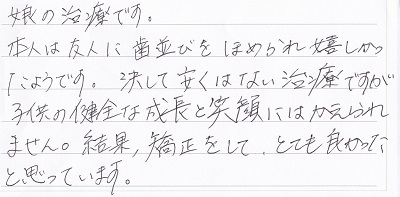 娘の治療です。
本人は友人に歯並びをほめられ嬉しかっ
たようです。決して安くはない治療ですが
子供の健全な成長と笑顔にはかえられ
ません。結果，矯正をして、とても良かった
と思っています。